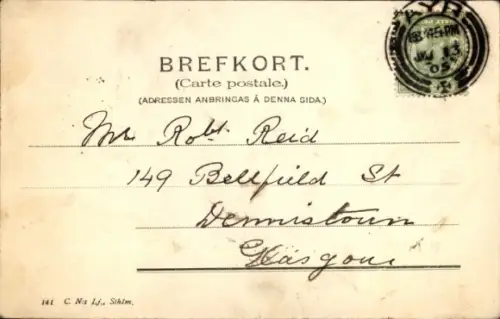 AYR
JU 13
05
BREFKORT.
(Carte postale.)
(ADRESSEN ANBRINGAS Å DENNA SIDA.)
Mr Robt. Reid
149 Bellfield St
Dennistoun
Glasgow
141 C. N:s Lj., Sthlm.